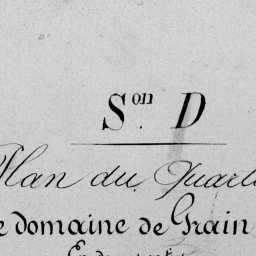 Son. D
Plan du Quart
e domaine de Grain